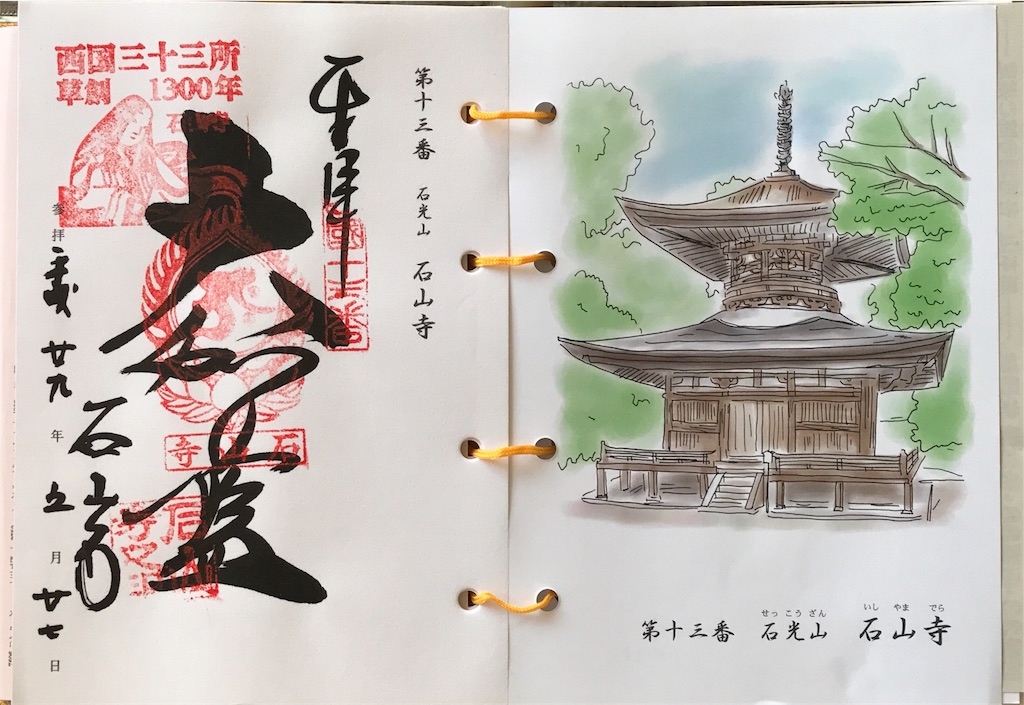 西国三十三所
草創 1300年
奉拝
第十三番 石光山 石山寺
大伽藍
石山寺
石山寺
参拝 平成 廿九 年 五 月 廿七 日
せっ こう ざん いし やま でら
第十三番 石光山 石山寺